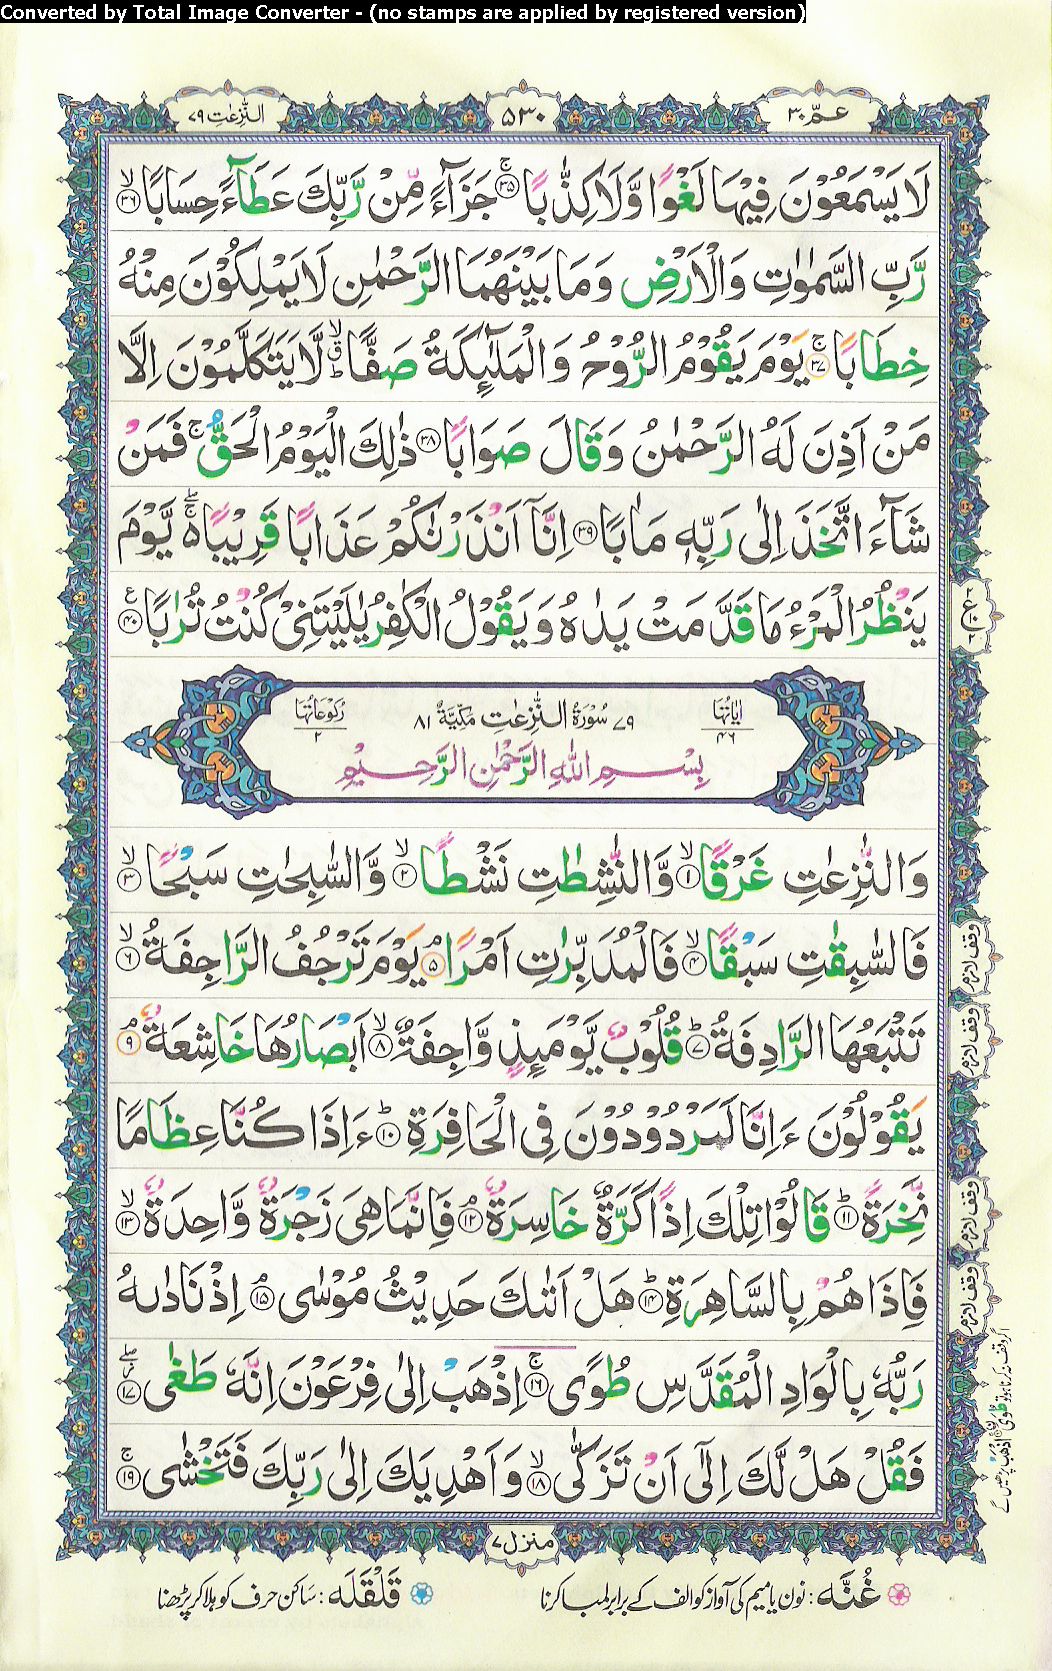 Converted by Total Image Converter - (no stamps are applied by registered version)
عمّ ۳۰
۵۳۰
النّٰزِعٰتِ ۷۹
لَا يَسْمَعُوْنَ فِيْهَا لَغْوًا وَّلَا كِذّٰبًا ۚ۝۳۵ جَزَآءً مِّنْ رَّبِّكَ عَطَآءً حِسَابًا ۙ۝۳۶
رَّبِّ السَّمٰوٰتِ وَالْاَرْضِ وَمَا بَيْنَهُمَا الرَّحْمٰنِ لَا يَمْلِكُوْنَ مِنْهُ
خِطَابًا ۚ۝۳۷ يَوْمَ يَقُوْمُ الرُّوْحُ وَالْمَلٰٓئِكَةُ صَفًّا ؕۙۗ لَّا يَتَكَلَّمُوْنَ اِلَّا
مَنْ اَذِنَ لَهُ الرَّحْمٰنُ وَقَالَ صَوَابًا ۝۳۸ ذٰلِكَ الْيَوْمُ الْحَقُّ ۚ فَمَنْ
شَآءَ اتَّخَذَ اِلٰى رَبِّهٖ مَاٰبًا ۝۳۹ اِنَّاۤ اَنْذَرْنٰكُمْ عَذَابًا قَرِيْبًا ۬ۚۖ يَّوْمَ
يَنْظُرُ الْمَرْءُ مَا قَدَّمَتْ يَدٰهُ وَيَقُوْلُ الْكٰفِرُ يٰلَيْتَنِيْ كُنْتُ تُرٰبًا ۝۴۰
ع
اٰيَاتُهَا ۴۶
۷۹ سُوْرَةُ النّٰزِعٰتِ مَكِّيَّةٌ ۸۱
رُكُوْعَاتُهَا ۲
بِسْمِ اللّٰهِ الرَّحْمٰنِ الرَّحِيْمِ
وَالنّٰزِعٰتِ غَرْقًا ۙ۝۱ وَّالنّٰشِطٰتِ نَشْطًا ۙ۝۲ وَّالسّٰبِحٰتِ سَبْحًا ۙ۝۳
فَالسّٰبِقٰتِ سَبْقًا ۙ۝۴ فَالْمُدَبِّرٰتِ اَمْرًا ۘ۝۵ يَوْمَ تَرْجُفُ الرَّاجِفَةُ ۙ۝۶
تَتْبَعُهَا الرَّادِفَةُ ؕ۝۷ قُلُوْبٌ يَّوْمَئِذٍ وَّاجِفَةٌ ۙ۝۸ اَبْصَارُهَا خَاشِعَةٌ ۘ۝۹
يَقُوْلُوْنَ ءَاِنَّا لَمَرْدُوْدُوْنَ فِي الْحَافِرَةِ ؕ۝۱۰ ءَاِذَا كُنَّا عِظَامًا
نَّخِرَةً ؕ۝۱۱ قَالُوْا تِلْكَ اِذًا كَرَّةٌ خَاسِرَةٌ ۘ۝۱۲ فَاِنَّمَا هِيَ زَجْرَةٌ وَّاحِدَةٌ ۙ۝۱۳
فَاِذَا هُمْ بِالسَّاهِرَةِ ؕ۝۱۴ هَلْ اَتٰىكَ حَدِيْثُ مُوْسٰى ۘ۝۱۵ اِذْ نَادٰىهُ
رَبُّهٗ بِالْوَادِ الْمُقَدَّسِ طُوًى ۚ۝۱۶ اِذْهَبْ اِلٰى فِرْعَوْنَ اِنَّهٗ طَغٰى ۖ۝۱۷
فَقُلْ هَلْ لَّكَ اِلٰۤى اَنْ تَزَكّٰى ۙ۝۱۸ وَاَهْدِيَكَ اِلٰى رَبِّكَ فَتَخْشٰى ۚ۝۱۹
وقف لازم
وقف لازم
وقف لازم
وقف لازم
منزل ۷
غُنَّه : نون یا میم کی آواز کو الف کے برابر لمبا کرنا
قَلْقَلَه : ساکن حرف کو ہلا کر پڑھنا